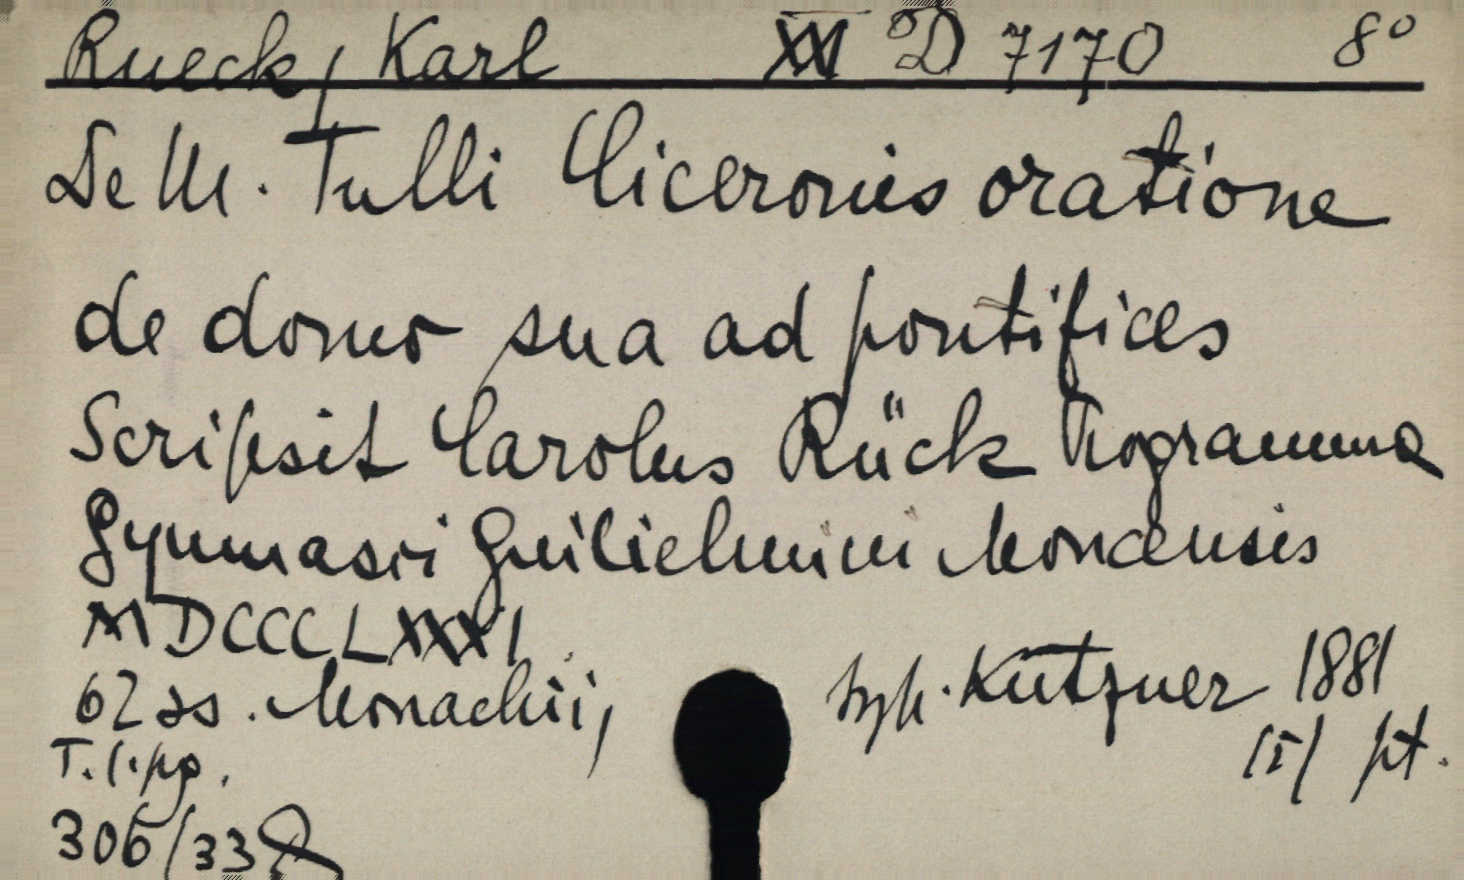 Rueck, Karl XXI D 7170 8°
De M. Tulli Ciceronis oratione
de domo sua ad pontifices
Scripsit Carolus Rück Programma
Gymnasii Guilielmini Monacensis
MDCCCLXXXI
62 ss. Monachii, typ. Kutzner 1881
T. l. pg. /I/ pt.
306/33